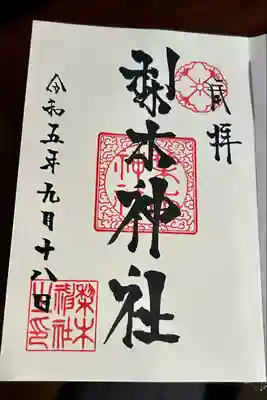 奉拝
梨木神社
令和五年九月十八日
梨木
神社
梨木
神社
之印